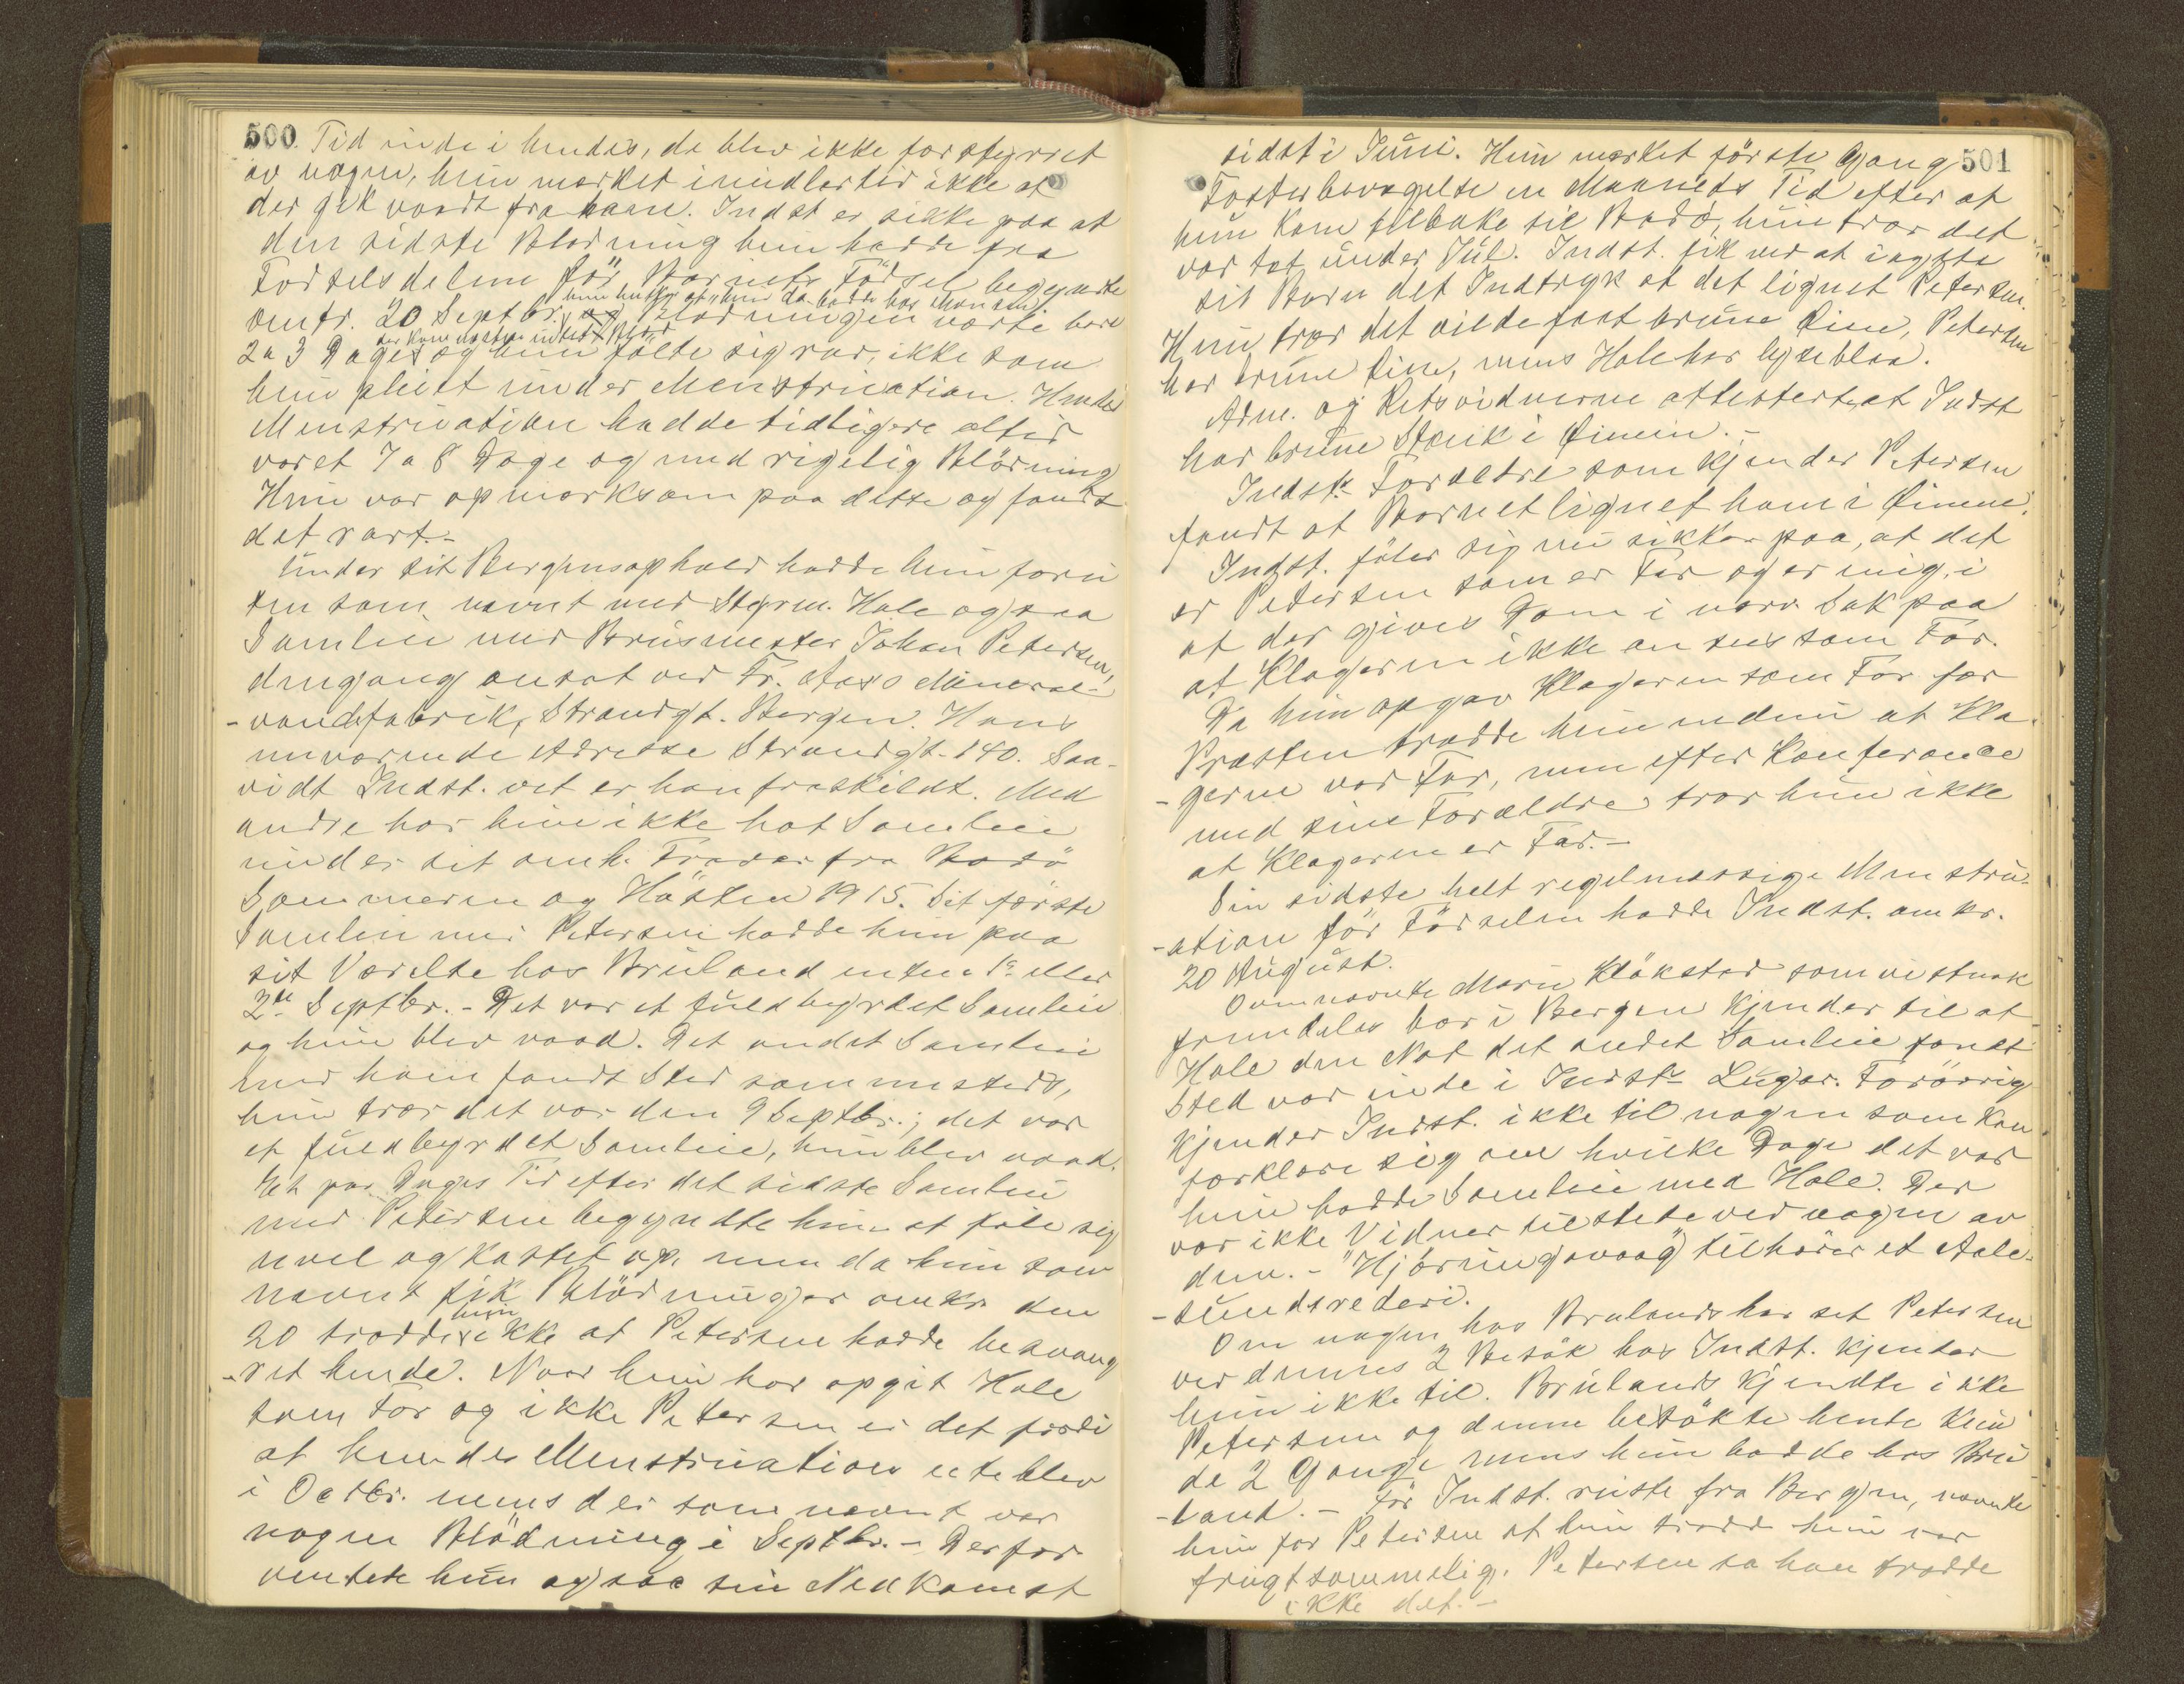 500
Tid inde i hendes, de blev ikke forstyrret
av nogen, hun merket imidlertid ikke at
der gik vondt fra ham. Indst er sikker paa at
den sidste Blødning hun hadde fra
Fødselsdelene før Barnets Fødsel begyndte
hun husker at hun da bodde hos Monsen
omkr. 20 Septbr. Blødningen varte bare
der kom næsten intet Blod
2 a 3 Dager og hun følte sig rar, ikke som
hun pleiet under Menstruation. Hendes
Menstruation hadde tidligere altid
varet 7 a 8 Dage og med rigelig Blødning
Hun var opmerksom paa dette og fandt
det rart.-
Under sit Bergensophold hadde hun foru
ten som nævnt med Styrm. Hole ogsaa
Samleie med Brusmester Johan Petersen,
dengang ansat ved Fr. Mineral-
-vandsfabrik, Strandgt. Bergen. Hans
nuværende Adresse Strandgt. 140. Saa-
vidt Indst. vet er han fraskildt. Med
andre har hun ikke hat Samleie
under sit omh. Fravær fra Bodø
Sommeren og Høsten 1915. Sit første
Samleie med Petersen hadde hun paa
sit Værelse hos Bruland enten 1ste eller
2den Septbr. - Det var et fuldbyrdet Samleie
og hun blev vaad. Det andet Samleie
med ham fandt Sted sammesteds,
hun tror det var den 9 Septbr.; det var
et fuldbyrdet Samleie, hun blev vaad.
Et par Dages Tid efter det sidste Samleie
med Petersen begyndte hun at føle sig
uvel og kastet op, men da hun som
nævnt fik Blødninger omkr. den
hun
20 trodde ikke at Petersen hadde besvang
-ret hende. Naar hun har opgit Hole
som Far og ikke Petersen er det fordi
at hendes Menstruation uteblev
i Octbr. mens der som nævnt var
nogen Blødning i Septbr. - Derfor
ventede hun ogsaa sin Nedkomst
501
sidst i Juni. Hun merket første Gang
Fosterbevægelse en Maaneds Tid efter at
hun kom tilbake til Bodø, hun tror det
var tæt under Jul. Indst. fik ved at iagtta
sit Barn det Indtryk at det lignet Petersen.
Hun tror det vilde faat brune Øine, Petersen
har brune Øine, mens Hole har lyseblaa.
Adm. og Retsvidnerne attesterte, at Indst
har brune Stænk i Øinene.-
Indst.s Forældre som kjender Petersen
fandt at Barnet lignet ham i Øinene.
Indst. føler sig nu sikker paa, at det
er Petersen som er Far og er enig i
at der gives Dom i nærv. Sak paa
at Klageren ikke ansees som Far.
Da hun opgav Klageren som Far for
Presten trodde hun endnu at Kla-
-geren var Far, men efter Konferance
med sine Forældre tror hun ikke
at Klageren er Far.-
Sin sidste helt regelmæssige Menstru-
-ation før Fødselen hadde Indst. omkr.
20 August.
Ovennævnte Marie Kløkstad som vistnok
fremdeles bor i Bergen kjender til at
Hole den Nat det andet Samleie fandt
Sted var inde i Indst.s Lugar. Forøvrig
kjender Indst. ikke til nogen som kan
forklare sig om hvilke Dage det var
hun hadde Samleie med Hole. Der
var ikke Vidner tilstede ved nogen av
dem. - "Hjørungavaag" tilhører et Aale-
-sundsrederi.
Om nogen hos Brulands har set Petersen
ved dennes 2 Besøk hos Indst. kjender
hun ikke til. Brulands kjendte ikke
Petersen og denne besøkte hende kun
de 2 Gange mens hun bodde hos Bru-
-land. - Før Indst. reiste fra Bergen, nævnte
hun for Petersen at hun trodde hun var
frugtsommelig. Petersen sa han trodde
ikke det.-